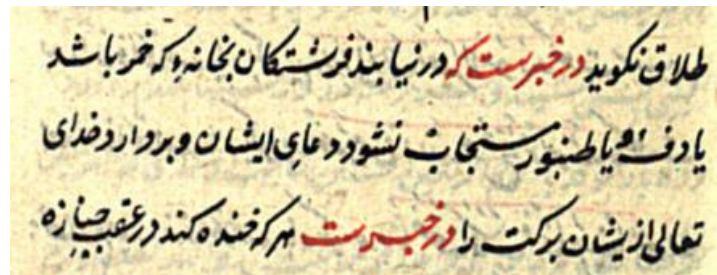 طلاق نکوید در خبرست که در نیایند فرشتکان بخانه که خمر باشد
یا دف و یا طنبور مستجاب نشود دعای ایشان و بردارد خدای
تعالی ازیشان برکت را در خبرست هر که خنده کند در عقب جنازه